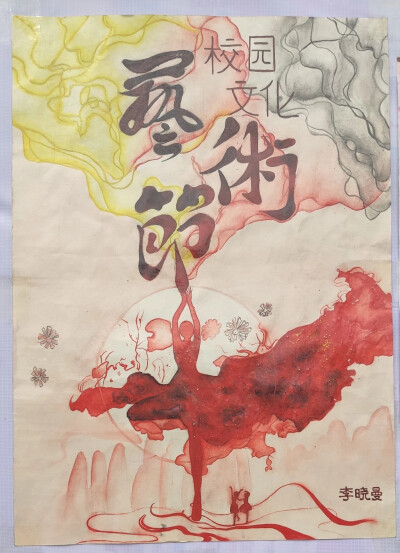 校园
文化
藝術節
李晓曼